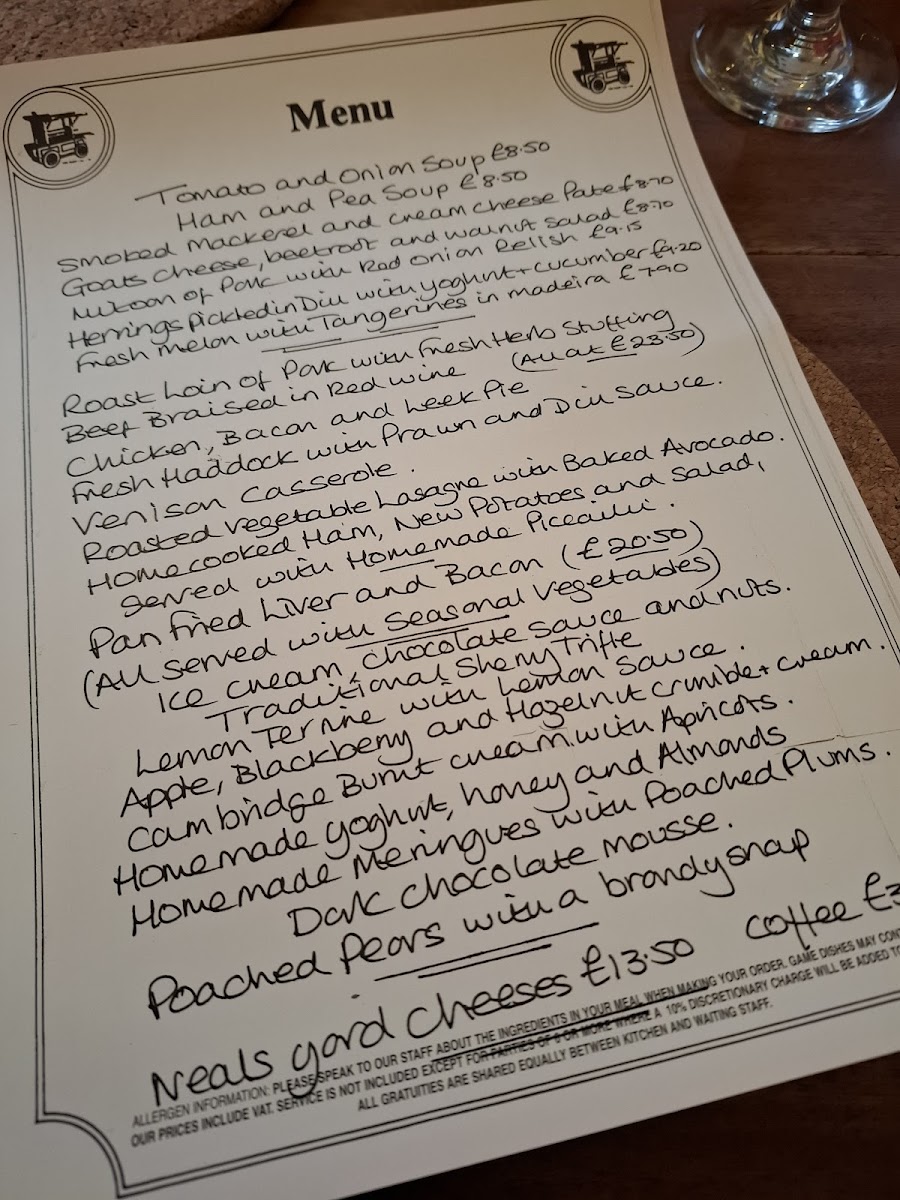 Menu
Tomato and Onion Soup £8.50
Ham and Pea Soup £8.50
Smoked Mackerel and cream cheese Pate £8.70
Goats cheese, beetroot and walnut salad £8.70
of Pork with Red Onion Relish £9.15
Herrings Pickled in Dill with yoghurt + cucumber £9.20
Fresh melon with Tangerines in madeira £7.90
Roast Loin of Pork with Fresh Herb Stuffing
Beef Braised in Red wine (All at £23.50)
Chicken, Bacon and Leek Pie
Fresh Haddock with Prawn and Dill Sauce.
Venison Casserole.
Roasted Vegetable Lasagne with Baked Avocado.
Homecooked Ham, New Potatoes and Salad,
served with Homemade Piccalilli.
Pan fried Liver and Bacon (£20.50)
(All served with Seasonal Vegetables)
Ice cream, chocolate sauce and nuts.
Traditional Sherry Trifle
Lemon Terrine with Lemon Sauce.
Apple, Blackberry and Hazelnut crumble + cream.
Cambridge Burnt cream with Apricots.
Homemade yoghurt, honey and Almonds
Homemade Meringues with Poached Plums.
Dark chocolate mousse.
Poached Pears with a brandysnap
Neals yard cheeses £13.50 Coffee £3
ALLERGEN INFORMATION: PLEASE SPEAK TO OUR STAFF ABOUT THE INGREDIENTS IN YOUR MEAL WHEN MAKING YOUR ORDER. GAME DISHES MAY CONT
OUR PRICES INCLUDE VAT. SERVICE IS NOT INCLUDED EXCEPT FOR PARTIES OF 6 OR MORE WHERE A 10% DISCRETIONARY CHARGE WILL BE ADDED TO
ALL GRATUITIES ARE SHARED EQUALLY BETWEEN KITCHEN AND WAITING STAFF.